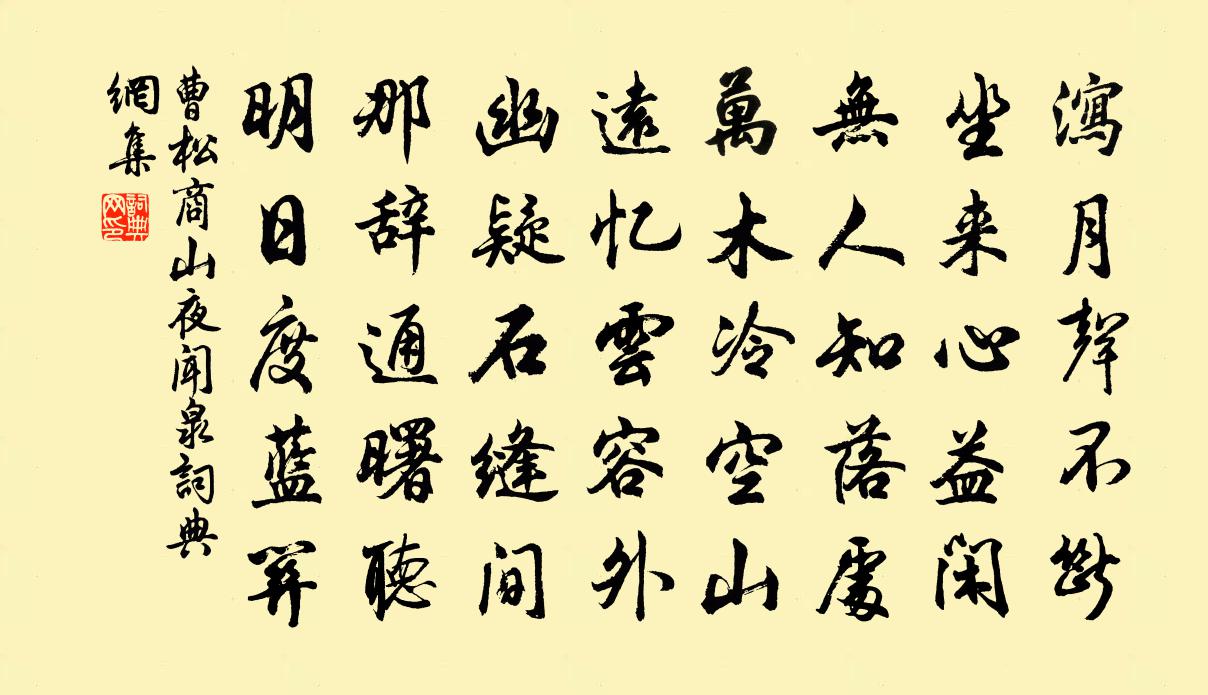 瀉月聲不斷
坐来心益闲
無人知落處
萬木冷空山
遠忆雲容外
幽疑石缝间
那辞通曙聽
明日度藍關
曹松商山夜闻泉詞典
網集
詞典
网印